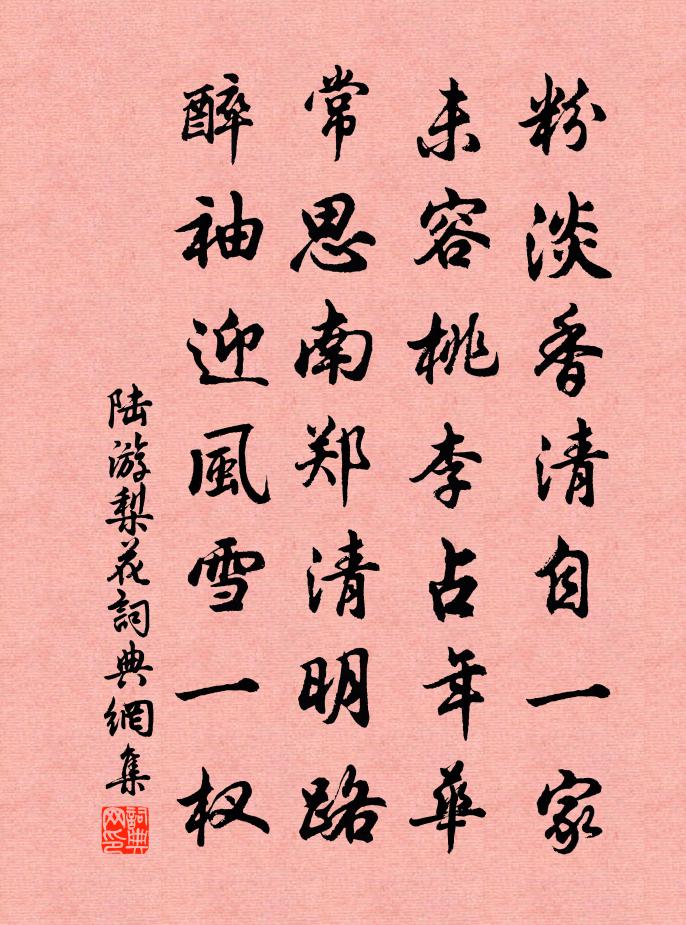 粉淡香清自一家
未容桃李占年華
常思南郑清明路
醉袖迎風雪一杈
陆游梨花詞典網集
詞典网印